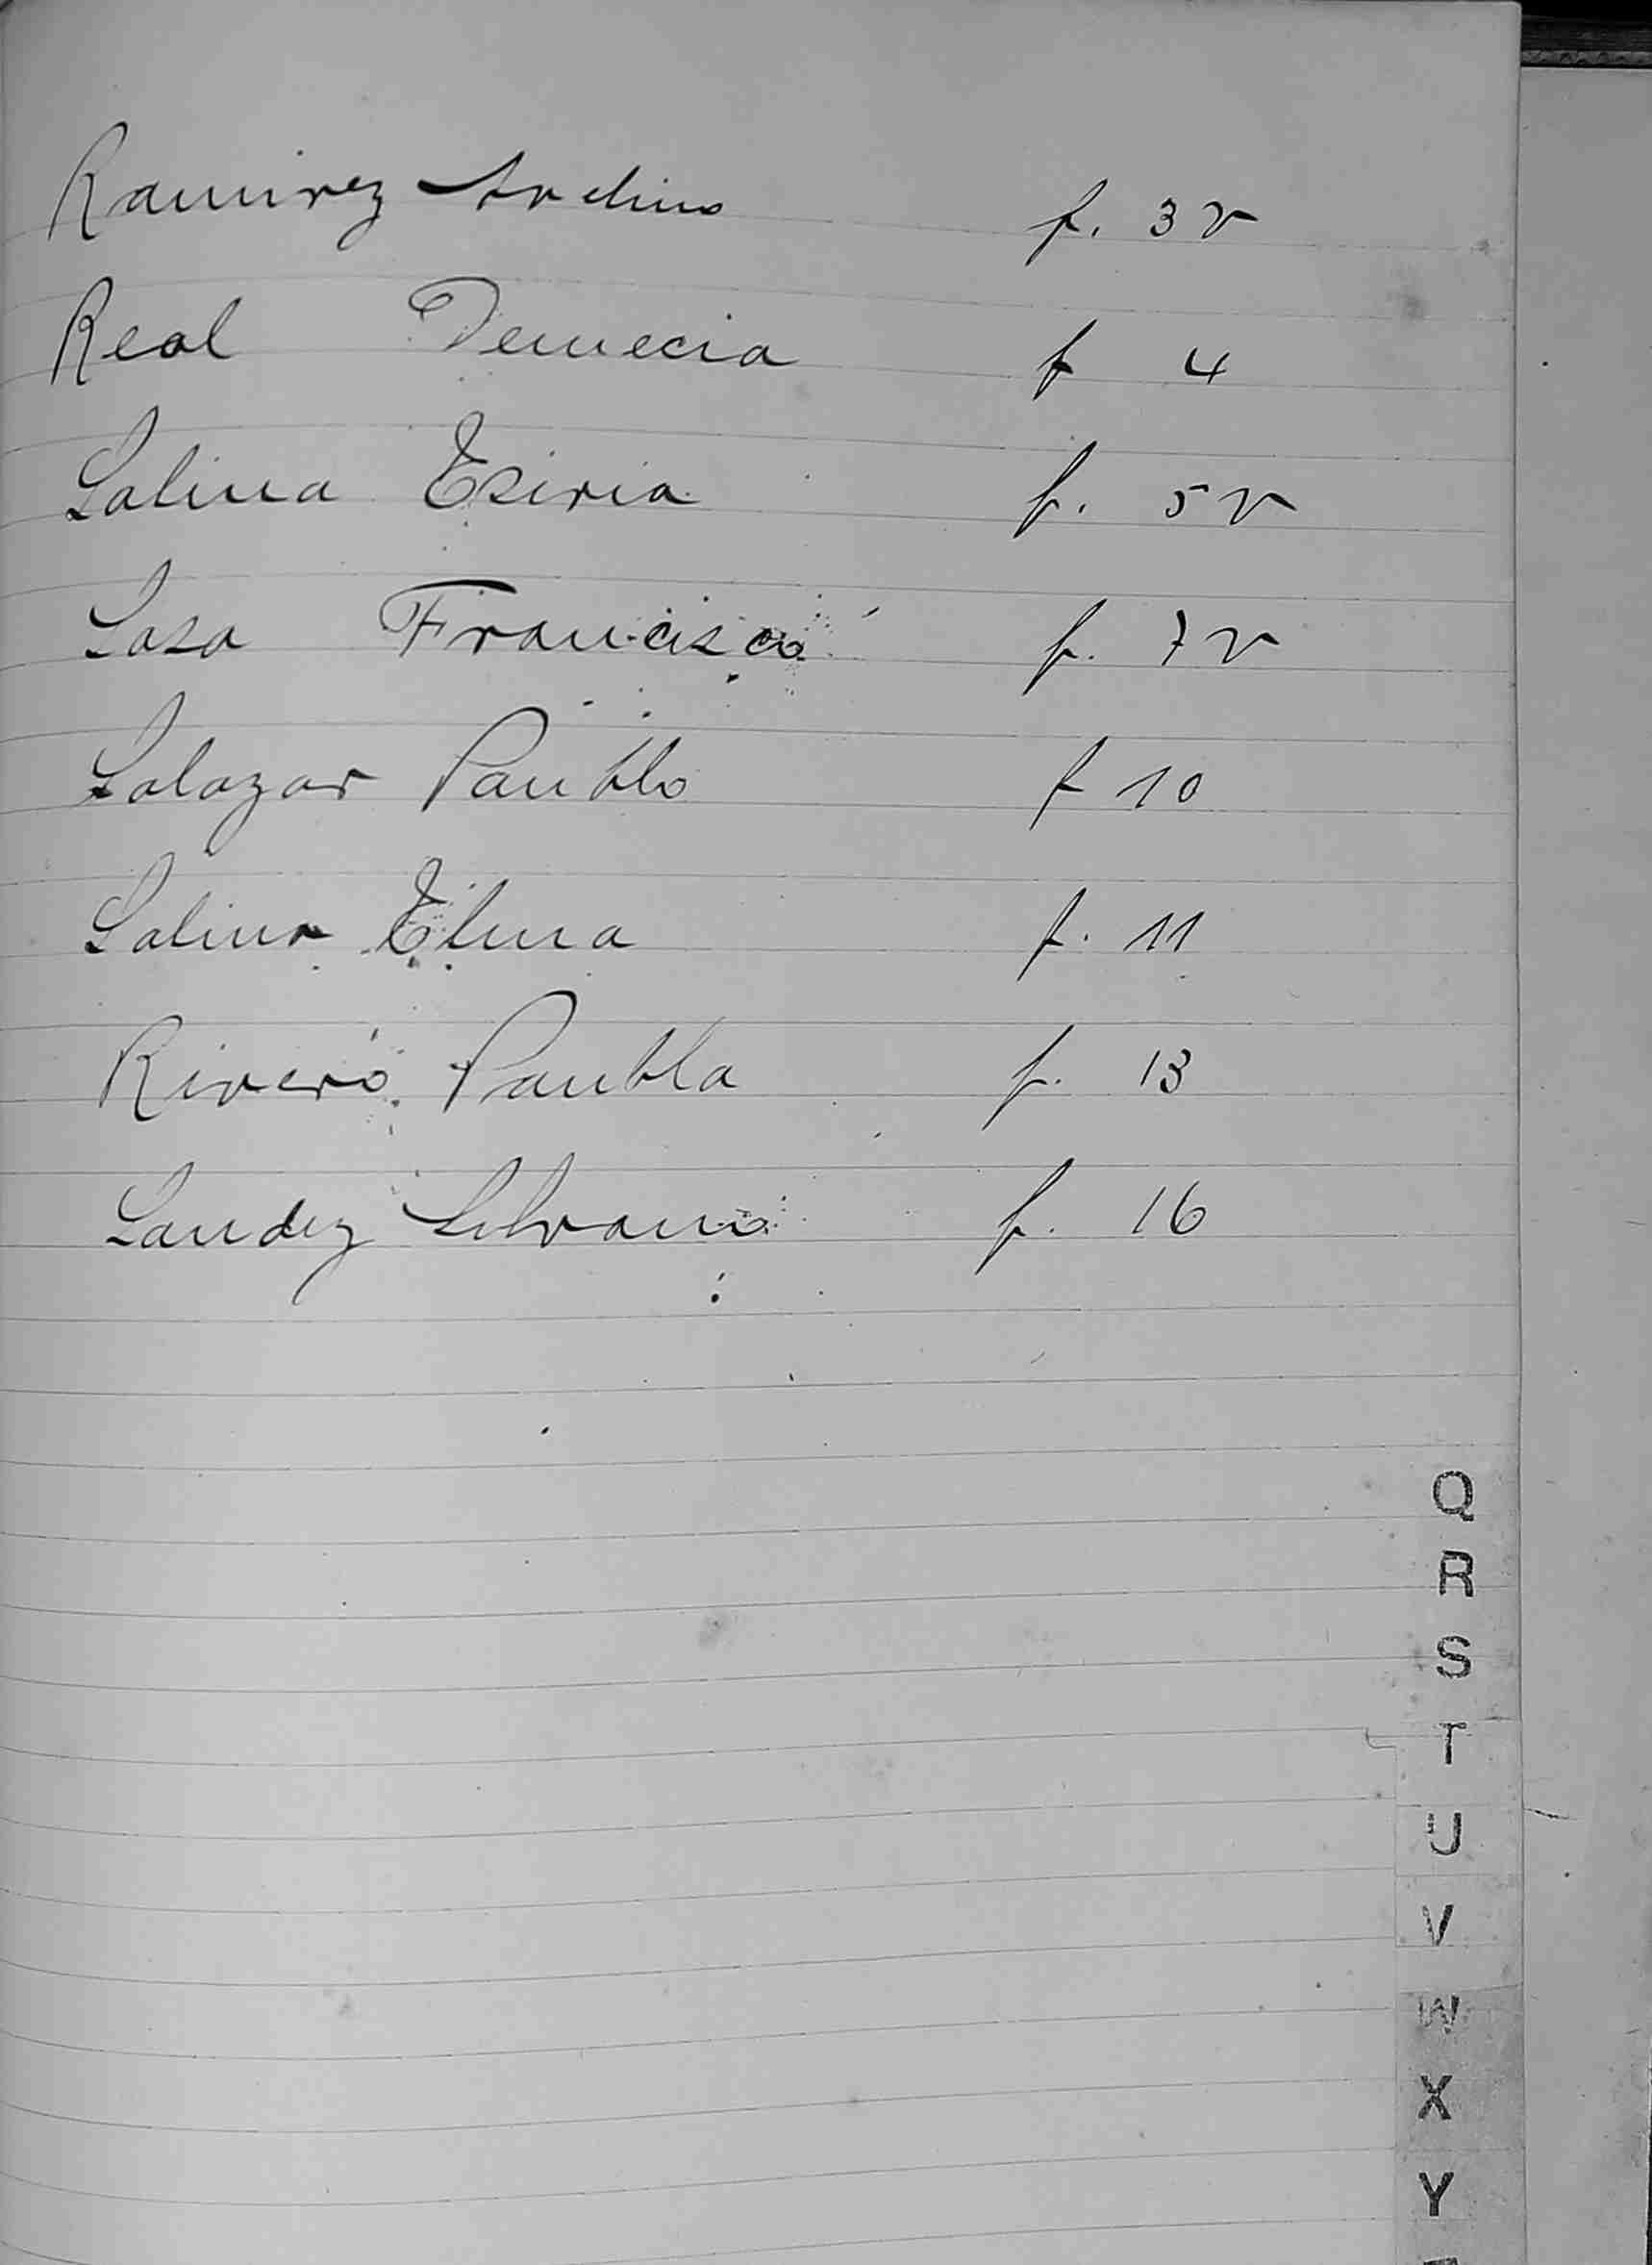 Ramirez Avelino f. 3 v
Real Demecia f 4
Salina Esiria f. 5 v
Sosa Francisco f. 7 v
Salazar Paublo f 10
Salina Elma f. 11
Rivero Paubla f. 13
Sandez Silvano f. 16
Q
R
S
T
U
V
W
X
Y